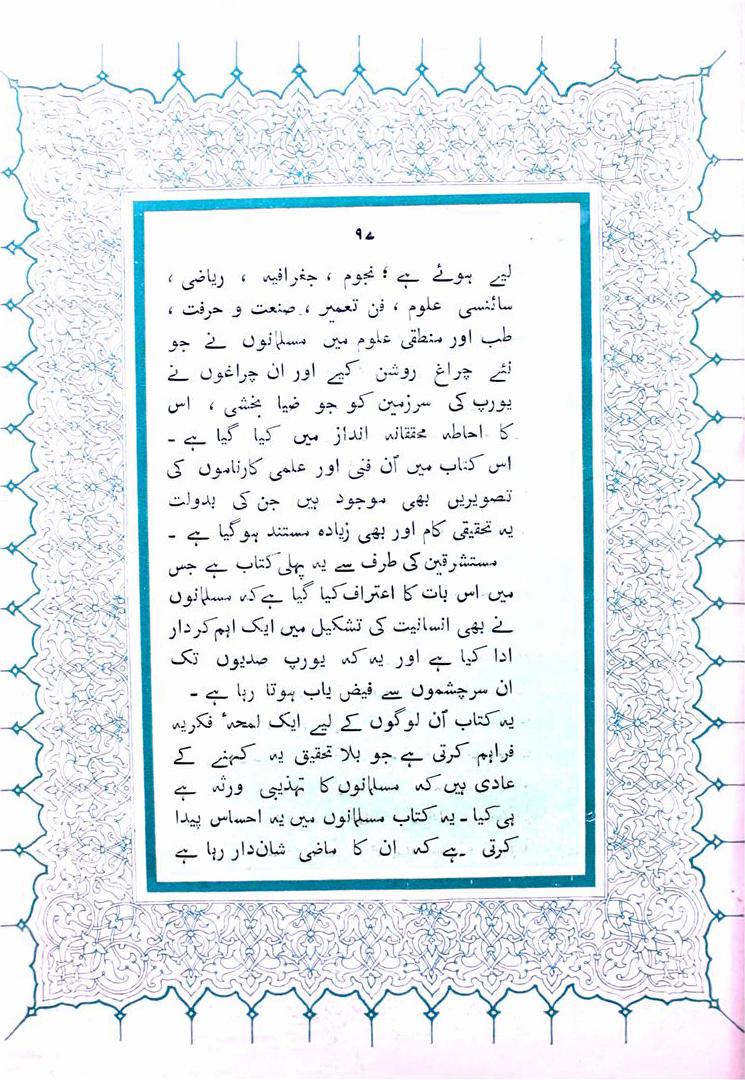 ۹۷
لیے ہوئے ہے ؛ نجوم ، جغرافیہ ، ریاضی ،
سائنسی علوم ، فن تعمیر ، صنعت و حرفت ،
طب اور منطقی علوم میں مسلمانوں نے جو
نئے چراغ روشن کیے اور ان چراغوں نے
یورپ کی سرزمین کو جو ضیا بخشی ، اس
کا احاطہ محققانہ انداز میں کیا گیا ہے ۔
اس کتاب میں اُن فنی اور علمی کارناموں کی
تصویریں بھی موجود ہیں جن کی بدولت
یہ تحقیقی کام اور بھی زیادہ مستند ہوگیا ہے ۔
مستشرقین کی طرف سے یہ پہلی کتاب ہے جس
میں اس بات کا اعتراف کیا گیا ہے کہ مسلمانوں
نے بھی انسانیت کی تشکیل میں ایک اہم کردار
ادا کیا ہے اور یہ کہ یورپ صدیوں تک
ان سرچشموں سے فیض یاب ہوتا رہا ہے ۔
یہ کتاب اُن لوگوں کے لیے ایک لمحہٴ فکریہ
فراہم کرتی ہے جو بلا تحقیق یہ کہنے کے
عادی ہیں کہ مسلمانوں کا تہذیبی ورثہ ہے
ہی کیا ۔ یہ کتاب مسلمانوں میں یہ احساس پیدا
کرتی ہے کہ ان کا ماضی شان‌دار رہا ہے